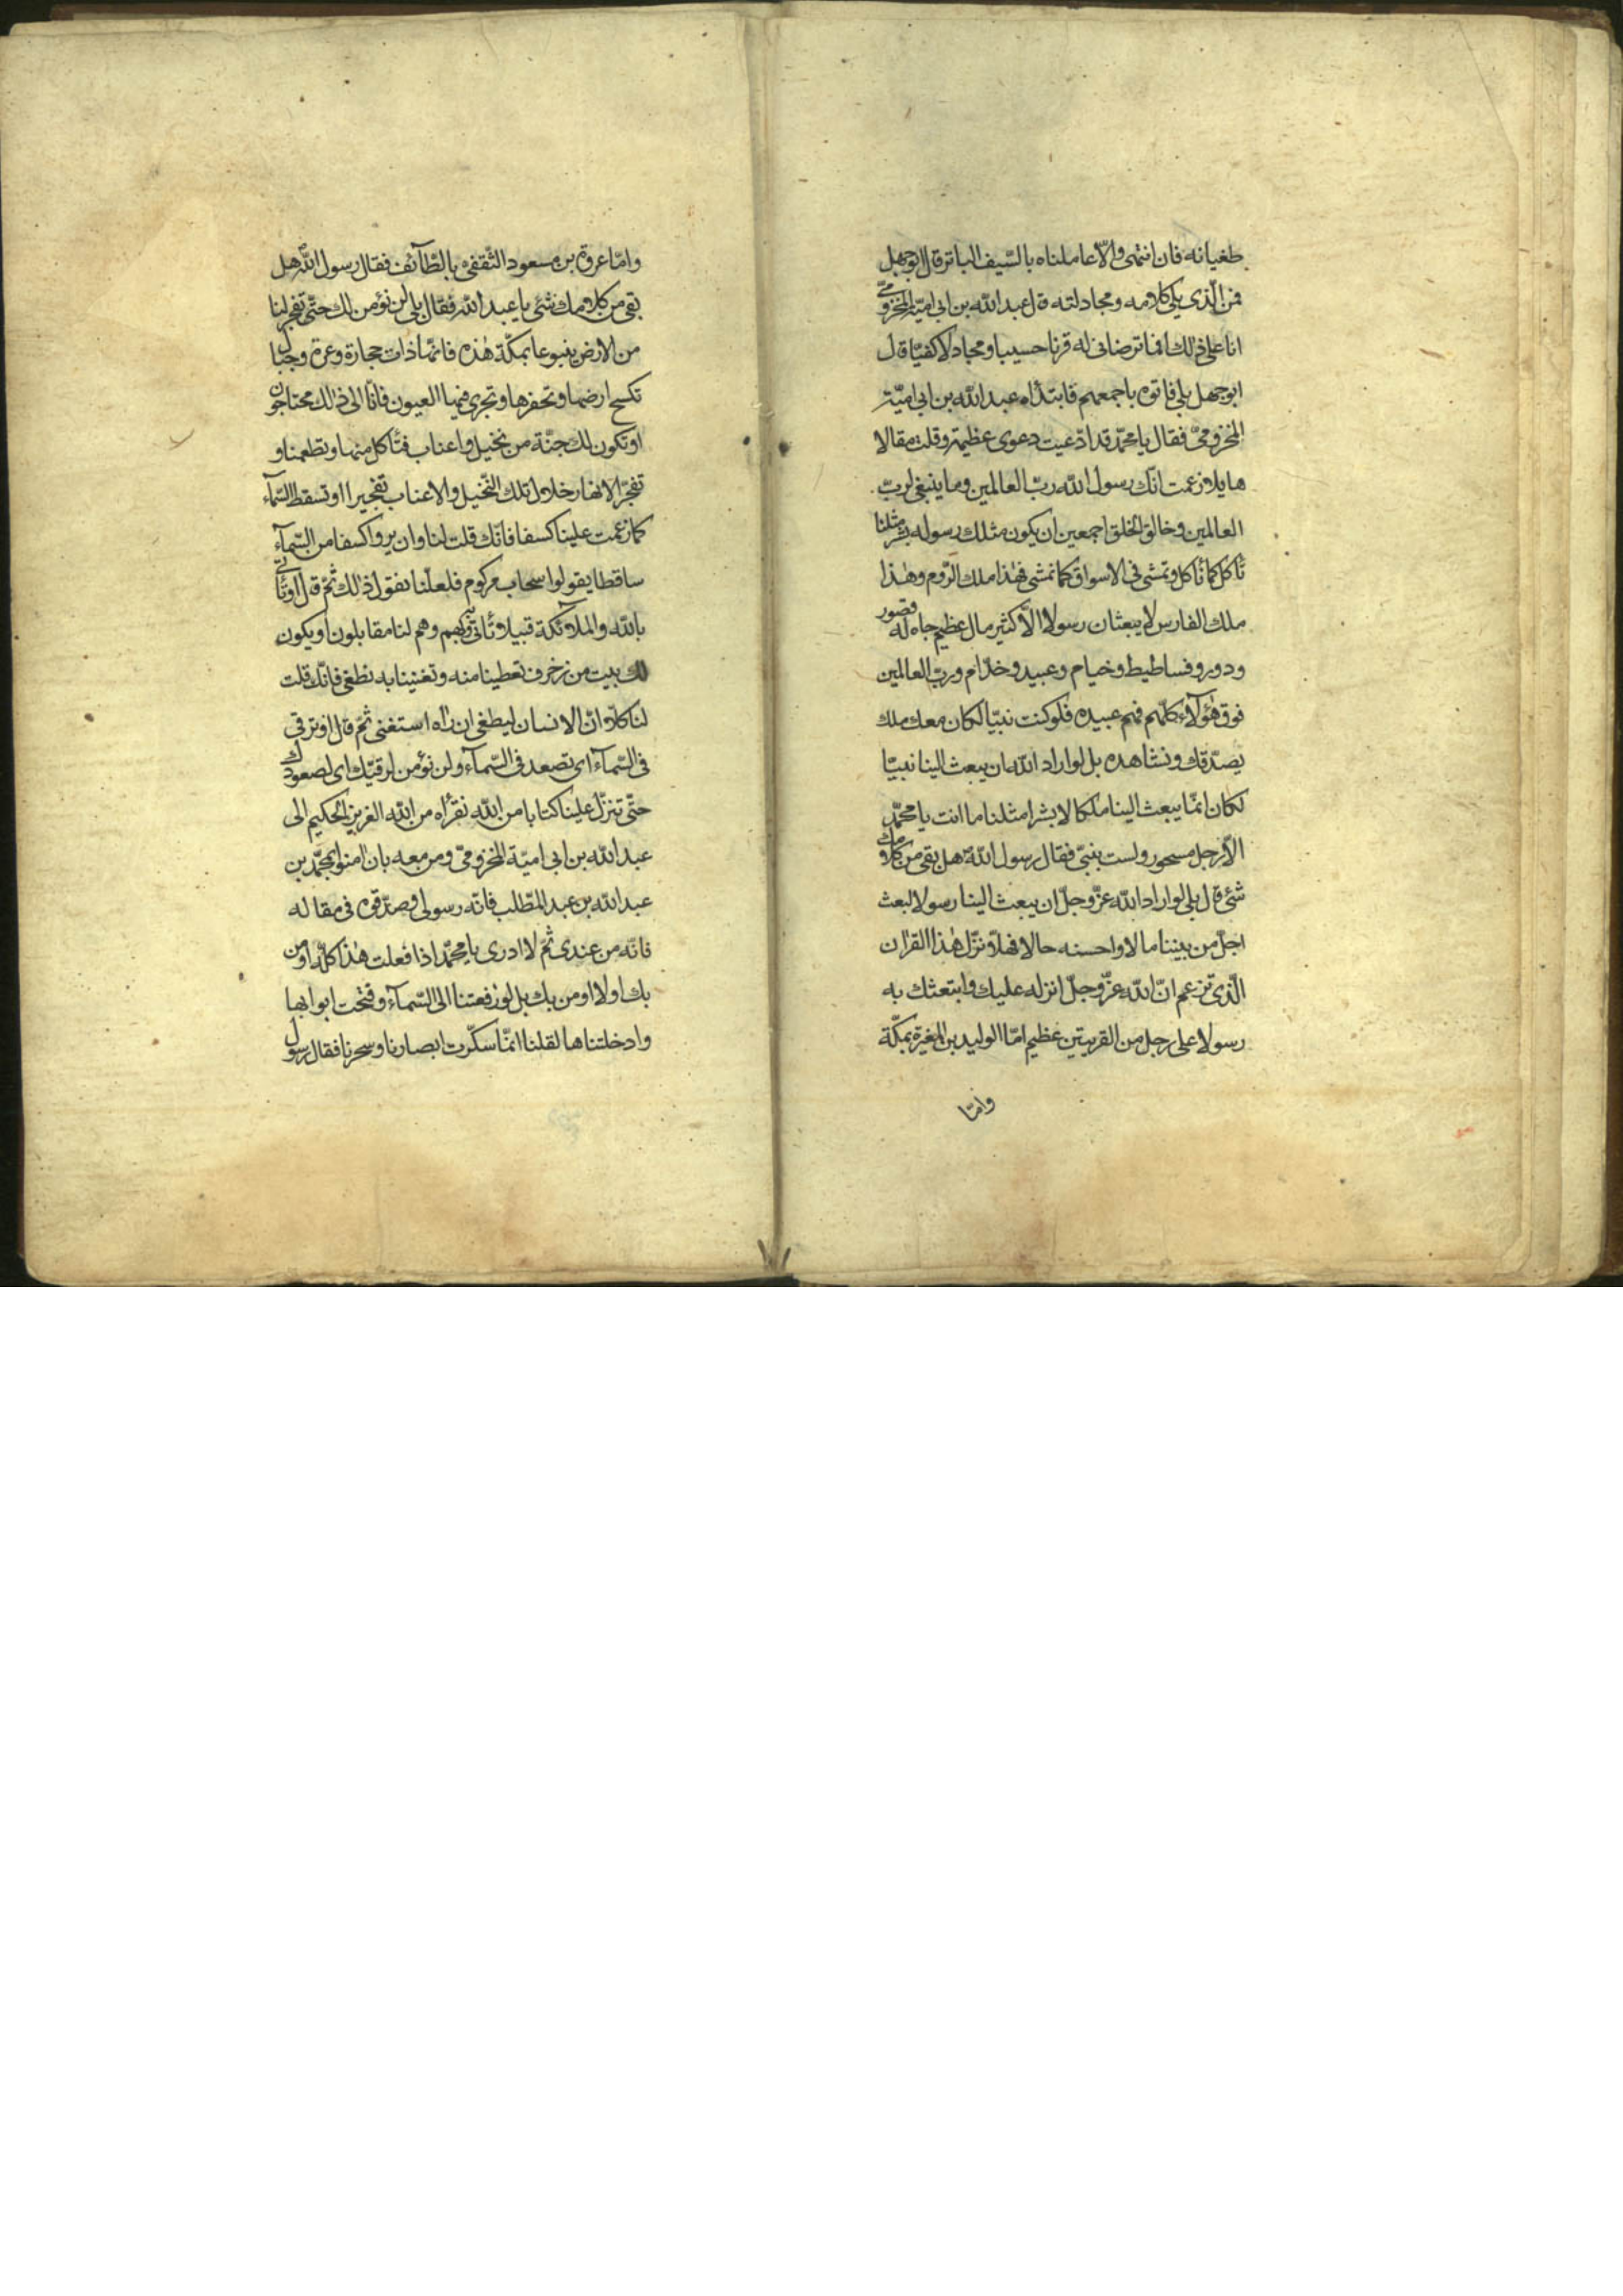 طغيانه فان انتهى والّا عاملناه بالسّيف الباتر قال ابوجهل
فمن الّذى يلى كلامه ومجادلته قال عبد الله بن ابى اميّة المخزومىّ
انا على ذلك افما ترضانى له قرنا حسيبا ومجادلا كفيّا قال
ابوجهل بلى فاتوه باجمعهم فابتدأه عبد الله بن ابى اميّة
المخزومىّ فقال يا محمّد قد ادّعيت دعوى عظيمة وقلت مقالا
هايلا زعمت انّك رسول الله ربّ العالمين وما ينبغى لربّ
العالمين وخالق الخلق اجمعين ان يكون مثلك رسوله بشر مثلنا
تأكل كما نأكل وتمشى فى الاسواق كما نمشى فهذا ملك الرّوم وهذا
ملك الفارس لا يبعثان رسولا الّا كثير مال عظيم جاه له قصور
ودور وفساطيط وخيام وعبيد وخدّام وربّ العالمين
فوق هؤلآء كلّهم فهم عبيده فلو كنت نبيّا لكان معك ملك
يصدّقك ونشاهده بل لو اراد الله ان يبعث الينا نبيّا
لكان انمّا يبعث الينا ملكا لا بشرا مثلنا ما انت يا محمّد
الّا رجل مسحور ولست بنبىّ فقال رسول الله هل بقى من كلامك
شئ قال بلى لو اراد الله عزّ وجلّ ان يبعث الينا رسولا لبعث
اجلّ من بيننا مالا واحسنه حالا فهلّا نزّل هذا القران
الّذى تزعم انّ الله عزّ وجلّ انزله عليك وابتعثك به
رسولا على رجل من القريتين عظيم امّا الوليد بن المغيرة بمكّة
وامّا
وامّا عروة بن مسعود الثّقفى بالطّآئف فقال رسول الله هل
بقى من كلامك شئ يا عبد الله فقال بلى لن نؤمن لك حتّى تفجر لنا
من الارض ينبوعا بمكّة هذه فانّها ذات حجارة وعرة وجبال
تكسح ارضها وتحفرها وتجرى فيها العيون فانّا الى ذلك محتاجون
او تكون لك جنّة من نخيل واعناب فتأكل منها وتطعمنا و
تفجّر الانهار خلال تلك النّخيل والاعناب تفجيرا او تسقط السّمآء
كما زعمت علينا كسفا فانّك قلت لنا وان يروا كسفا من السّمآء
ساقطا يقولوا سحاب مركوم فلعلّنا نقول ذلك ثمّ قال او تأتى
بالله والملآئكة قبيلا تأتى بهم وهم لنا مقابلون او يكون
لك بيت من زخرف تعطينا منه وتغنينا به نطغى فانّك قلت
لنا كلّا انّ الانسان ليطغى ان رآه استغنى ثمّ قال او ترقى
فى السّمآء اى تصعد فى السّمآء ولن نؤمن لرقيّك اى لصعودك
حتّى تنزّل علينا كتابا من الله نقرأه من الله العزيز الحكيم الى
عبد الله بن ابى اميّة المخزومىّ ومن معه بان امنوا بمحمّد بن
عبد الله بن عبد المطّلب فانّه رسولى وصدّقوه فى مقاله
فانّه من عندى ثمّ لا ادرى يا محمّد اذا فعلت هذا كلّه اومن
بك او لا اومن بك بل لو رفعتنا الى السّمآء وفتحت ابوابها
وادخلتناها لقلنا انمّا سكّرت ابصارنا وسحرنا فقال رسول